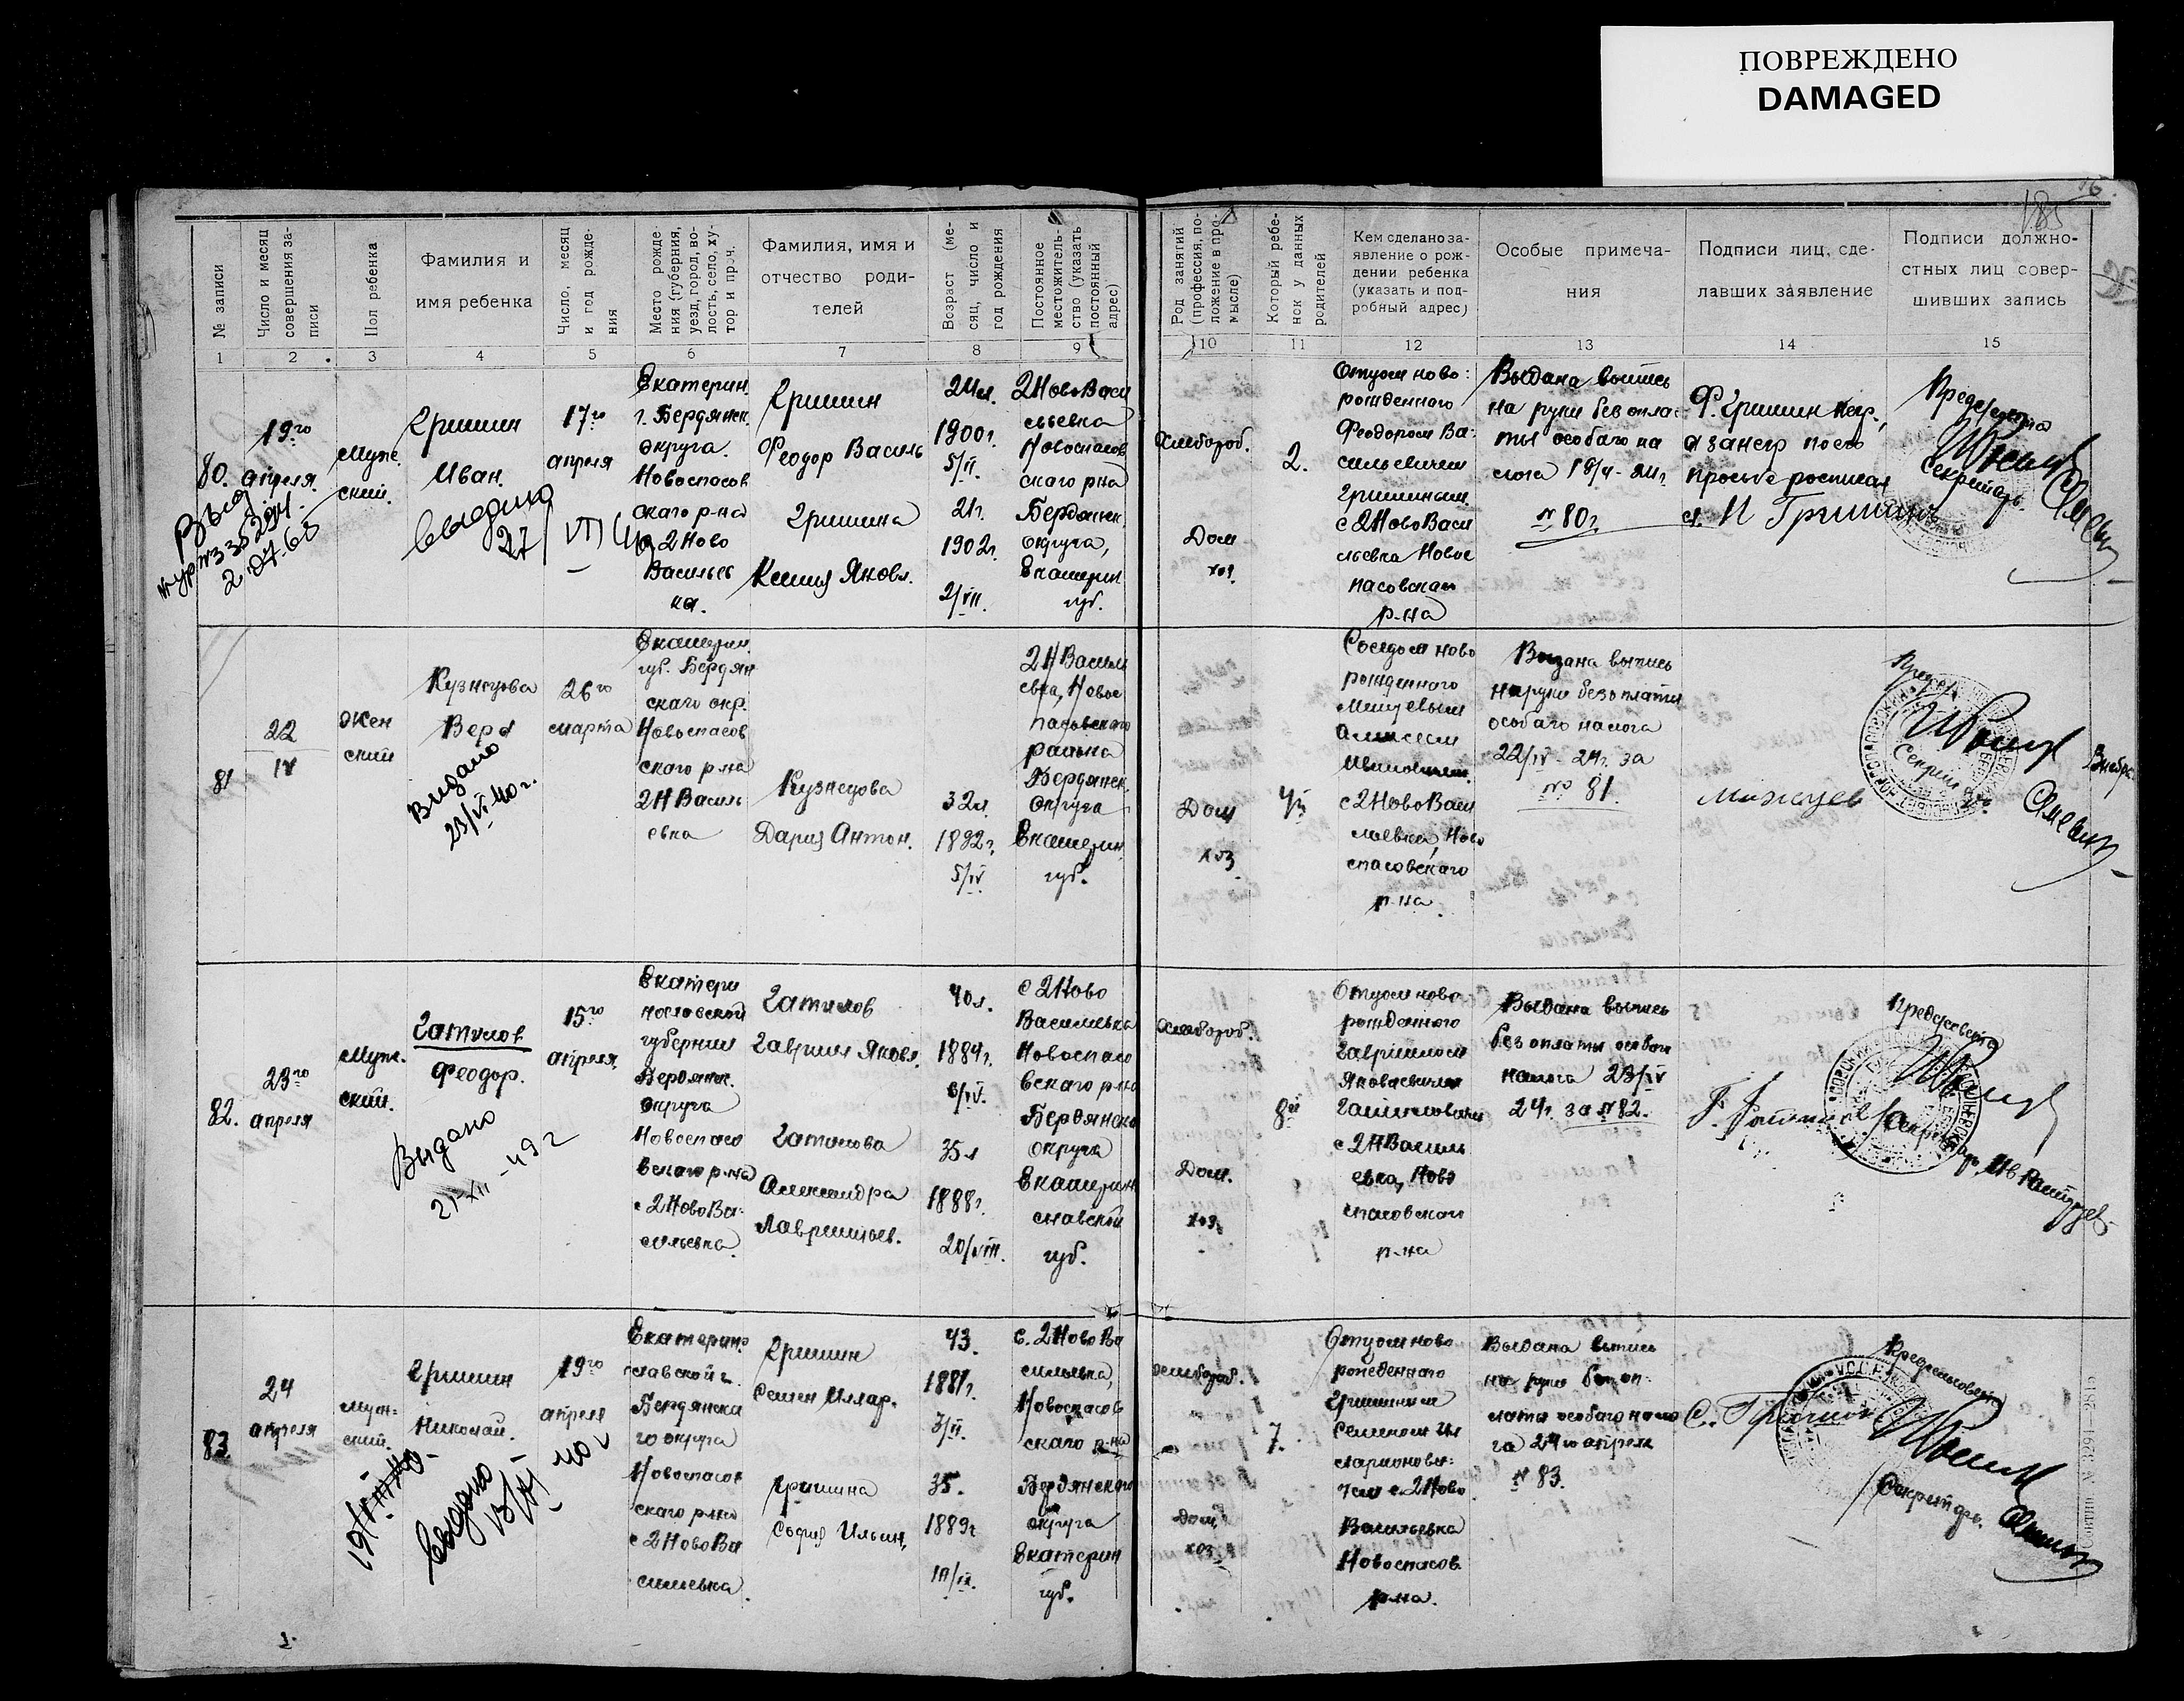 ПОВРЕЖДЕНО
DAMAGED
185
№ записи
Число и месяц совершения записи
Пол ребенка
Фамилия и
имя ребенка
Число, месяц и год рождения
Место рожде-
ния (губерния,
уезд, город, во-
лость, село, ху-
тор и проч.
Фамилия, имя и
отчество роди-
телей
Возраст (ме-
сяц, число и
год рождения
Постоянное
местожитель-
ство (указать
постоянный
адрес)
Род занятий
(профессия, по-
ложение в про-
мысле)
Который ребе-
нок у данных
родителей
Кем сделано за-
явление о рож-
дении ребенка
(указать и под-
робный адрес)
Особые примеча-
ния
Подписи лиц, сде-
лавших заявление
Подписи должно-
стных лиц совер-
шивших запись
1 2 3 4 5 6 7 8 9 10 11 12 13 14 15
80.
19го
апреля.
Муж.
ский.
Гришин
Иван.
выдано
17го
апреля
Екатерин.
г. Бердянск.
округа.
Новоспасов
скаго р-на
с 2 Ново
Васильев
ка.
Гришин
Феодор Василь
Гришина
Ксения Яковл.
24 л.
1900 г.
5/II.
21 г.
1902 г.
2/VII.
2 Ново Васи
льевка
Новоспасов
скаго р-на
Бердянск.
округа,
Екатерин
губ.
Хлебороб.
Дом
хоз.
2.
Отцом ново:
рожденного
Феодором Ва:
сильевичем
Гришиным
с 2 Ново Васи
льевка Новос
пасовскаго
р-на
Выдана выпись
на руки без опла
ты особаго на
лога 19/4 - 24 г.
№ 80 г.
Ф. Гришин негр.,
а за негр по его
просьбе росписал
с. И Гришин
Председ
Секретарь
81
22
IV
Жен
ский
Кузнецова
Вера
Видано
23/VI 40 г.
26го
марта
Екатерин.
губ. Бердян
скаго окр.
Новоспасов
ского р-на
2 Н Василь
евка
Кузнецова
Дария Антон.
32 л
1892 г.
5/IV
2 Н Василь
евка, Новос
пасовскаго
района
Бердянск.
округа
Екатерин.
губ.
Дом
хоз
4й
Соседом ново
рожденного
Алексеем
с 2 Ново Васи
льевка, Ново
спасовскаго
р-на
Выдана выпись
на руки без оплати
особаго налога
22/IV - 24 г. за
№ 81.
Секретарь
82.
23го
апреля
Муж.
ский.
Гатилов
Феодор.
Выдано
21-XII - 49 г
15го
апреля
Екатери
нославской
губернии
Бердянск.
округа
Новоспасо
вскаго р-на
с 2 Ново Ва:
сильевка.
Гатилов
Гавриил Яковл.
Гатилова
Александра
Лаврентьев.
40 л.
1884 г.
6/IV.
35 л
1888 г.
20/VIII.
с 2 Ново
Васильевка
Новоспасо
вскаго р-на
Бердянскаго
округа
Екатерино
славской
губ.
Хлебороб.
Дом.
хоз.
8й
Отцом ново
рожденного
Гавриилом
Яковлевичем
Гатиловым
с 2 Н Василь
евка, Ново
спасовскаго
р-на
Выдана выпись
без оплаты особаго
налога 23/IV
24 г. за № 82.
Секретарь
83.
24
апреля
Муж-
ский.
Гришин
Николай.
Выдано
19го
апреля
Екатерино
славской г.
Бердянска
го округа
Новоспасов
скаго р-на
с 2 Ново Ва
сильевка.
Гришин
Семен Иллар.
Гришина
София Ильин.
43.
1881 г.
3/II.
35.
1889 г
с. 2 Ново Ва
сильевка,
Новоспасов
скаго р-на
Бердянскаго
округа
Екатерин
губ.
Хлебороб.
Дом.
хоз
7.
Отцом ново
рожденного
Гришиным
Семеном Ил
ларионови-
чем с. 2 Ново
Васильевка
Новоспасов
р-на.
Выдана выпись
на руки без оп
лати особаго нало
га 24го апреля
№ 83.
С. Гришин
Секретарь.